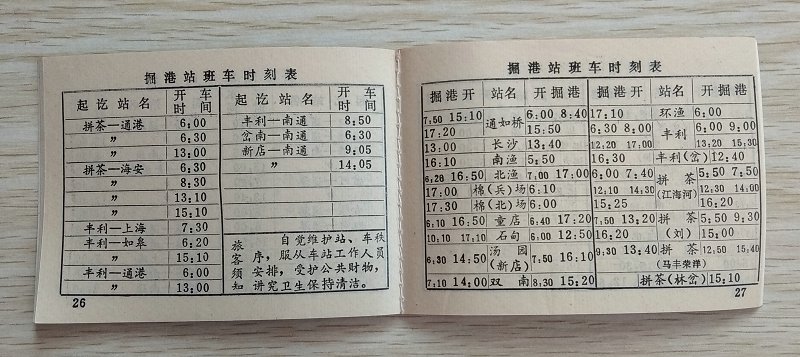 掘港站班车时刻表
起讫站名 开车时间 起讫站名 开车时间
拼茶—通港 6:00 丰利—南通 8:50
〃 6:30 岔南—南通 6:30
〃 13:00 新店—南通 9:05
拼茶—海安 6:30 〃 14:05
〃 8:30
〃 13:10
〃 15:10
丰利—上海 7:30
丰利—如皋 6:20
〃 15:10
丰利—通港 6:00
〃 13:00
旅客须知
自觉维护站、车秩
序,服从车站工作人员
安排,受护公共财物,
讲究卫生保持清洁。
26
掘港站班车时刻表
掘港开 站名 开掘港 掘港开 站名 开掘港
7:50 15:10 通如桥 6:00 8:40 17:10 环渔 6:00
17:20 15:50 6:30 8:00 丰利 6:00 9:00
13:00 长沙 13:40 12:20 17:00 13:20 15:30
16:10 南渔 5:50 16:30 丰利(岔) 12:40
6:28 16:50 北渔 7:00 17:00 6:00 7:40 拼茶(江海河) 5:50 7:50
17:00 棉(兵)场 6:10 12:10 14:30 12:30 14:00
17:30 棉(北)场 6:00 15:25 16:20
6:10 16:50 童店 6:40 17:20 7:50 13:20 拼茶(刘) 5:50 9:30
10:10 17:10 石甸 6:00 12:50 16:20 15:00
6:30 14:50 汤园(新店) 7:50 16:10 9:30 13:40 拼茶(马丰荣洋) 12:50 15:40
7:10 14:00 双南 8:30 15:20 拼茶(林岔) 15:10
27